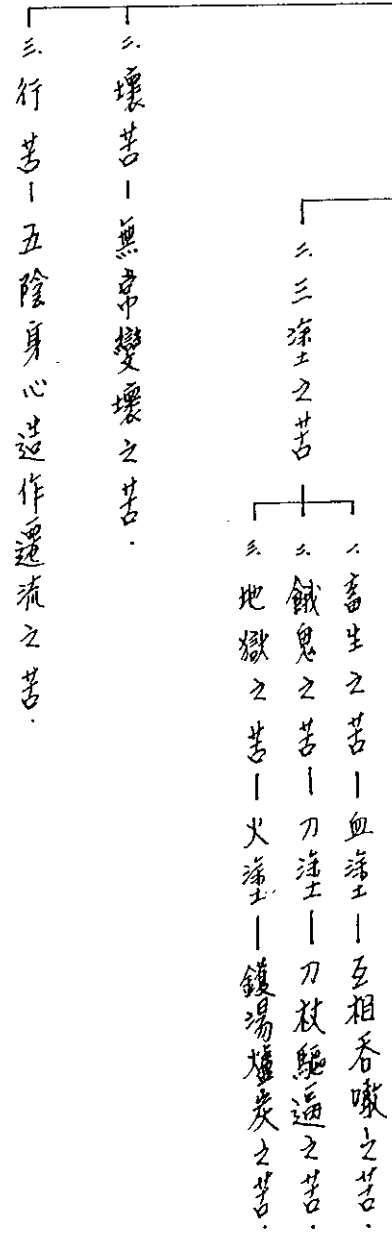 二、三塗之苦
一、畜生之苦－血塗－互相吞噉之苦．
二、餓鬼之苦－刀塗－刀杖驅逼之苦．
三、地獄之苦－火塗－鑊湯爐炭之苦．
二、壞苦－無常變壞之苦．
三、行苦－五陰身心造作遷流之苦．